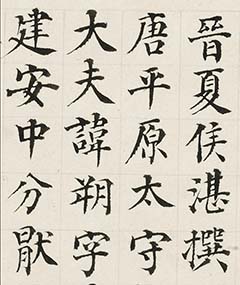 晉夏侯湛撰
唐平原太守
大夫諱朔字
建安中分猒